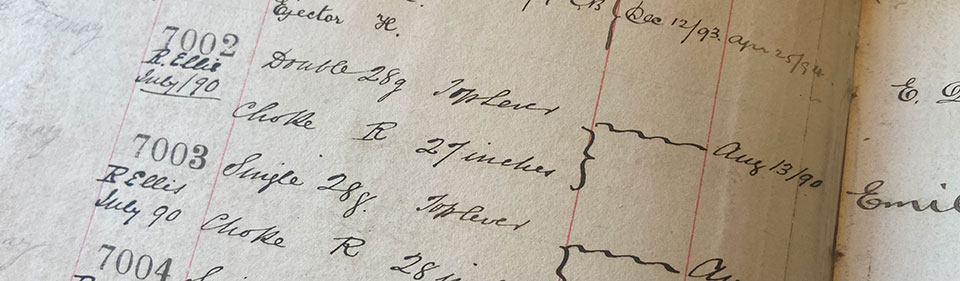 Ejector H. Dec 12/93. Apr 25/94
7002 Double 28g Top Lever
R. Ellis
July/90 Choke R 27 inches Aug 13/90
7003 Single 28g. Top Lever
R Ellis
July 90 Choke R 28 in
7004
E.
Emil